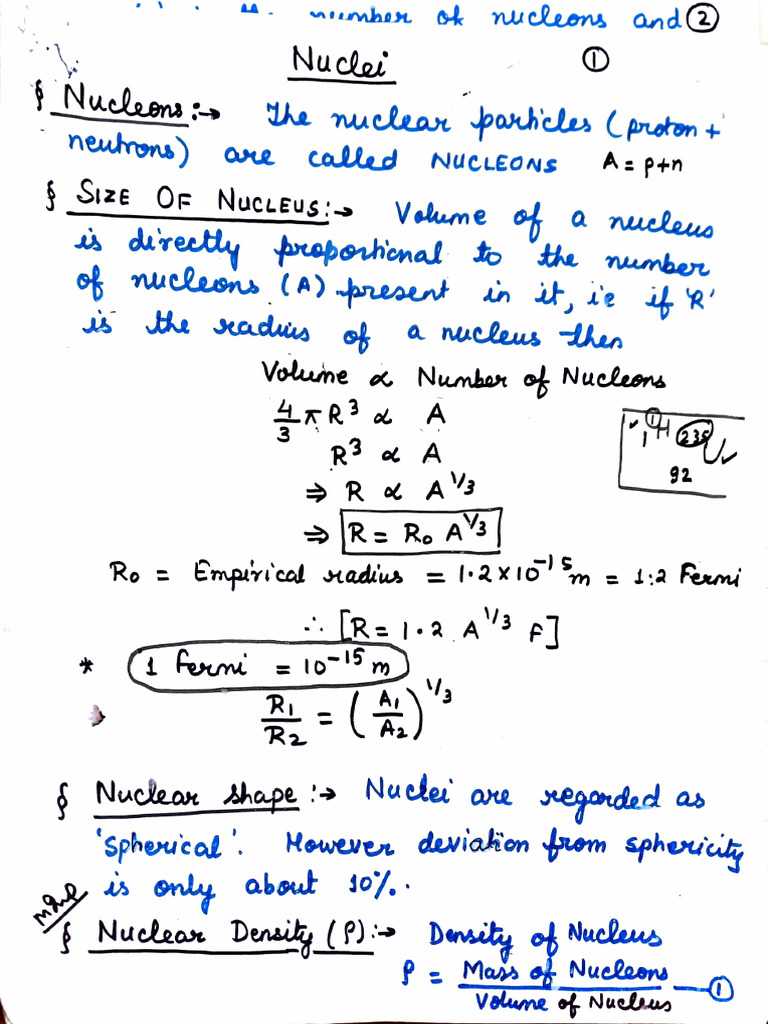 number of nucleons and ②
Nuclei ①
§ Nucleons:→ The nuclear particles (proton +
neutrons) are called NUCLEONS A = p+n
§ SIZE OF NUCLEUS:→ Volume of a nucleus
is directly proportional to the number
of nucleons (A) present in it, i.e if 'R'
is the radius of a nucleus then
Volume ∝ Number of Nucleons
4/3 π R³ ∝ A
R³ ∝ A
✓ 1 ① H 235 U ✓
92
⇒ R ∝ A^1/3
⇒ R = R₀ A^1/3
R₀ = Empirical radius = 1.2×10^-15 m = 1.2 Fermi
∴ [R = 1.2 A^1/3 F]
* 1 Fermi = 10^-15 m
R₁/R₂ = (A₁/A₂)^1/3
§ Nuclear shape :→ Nuclei are regarded as
'spherical'. However deviation from sphericity
is only about 10%.
§ Nuclear Density (ρ):→ Density of Nucleus
ρ = Mass of Nucleons — ①
Volume of Nucleus